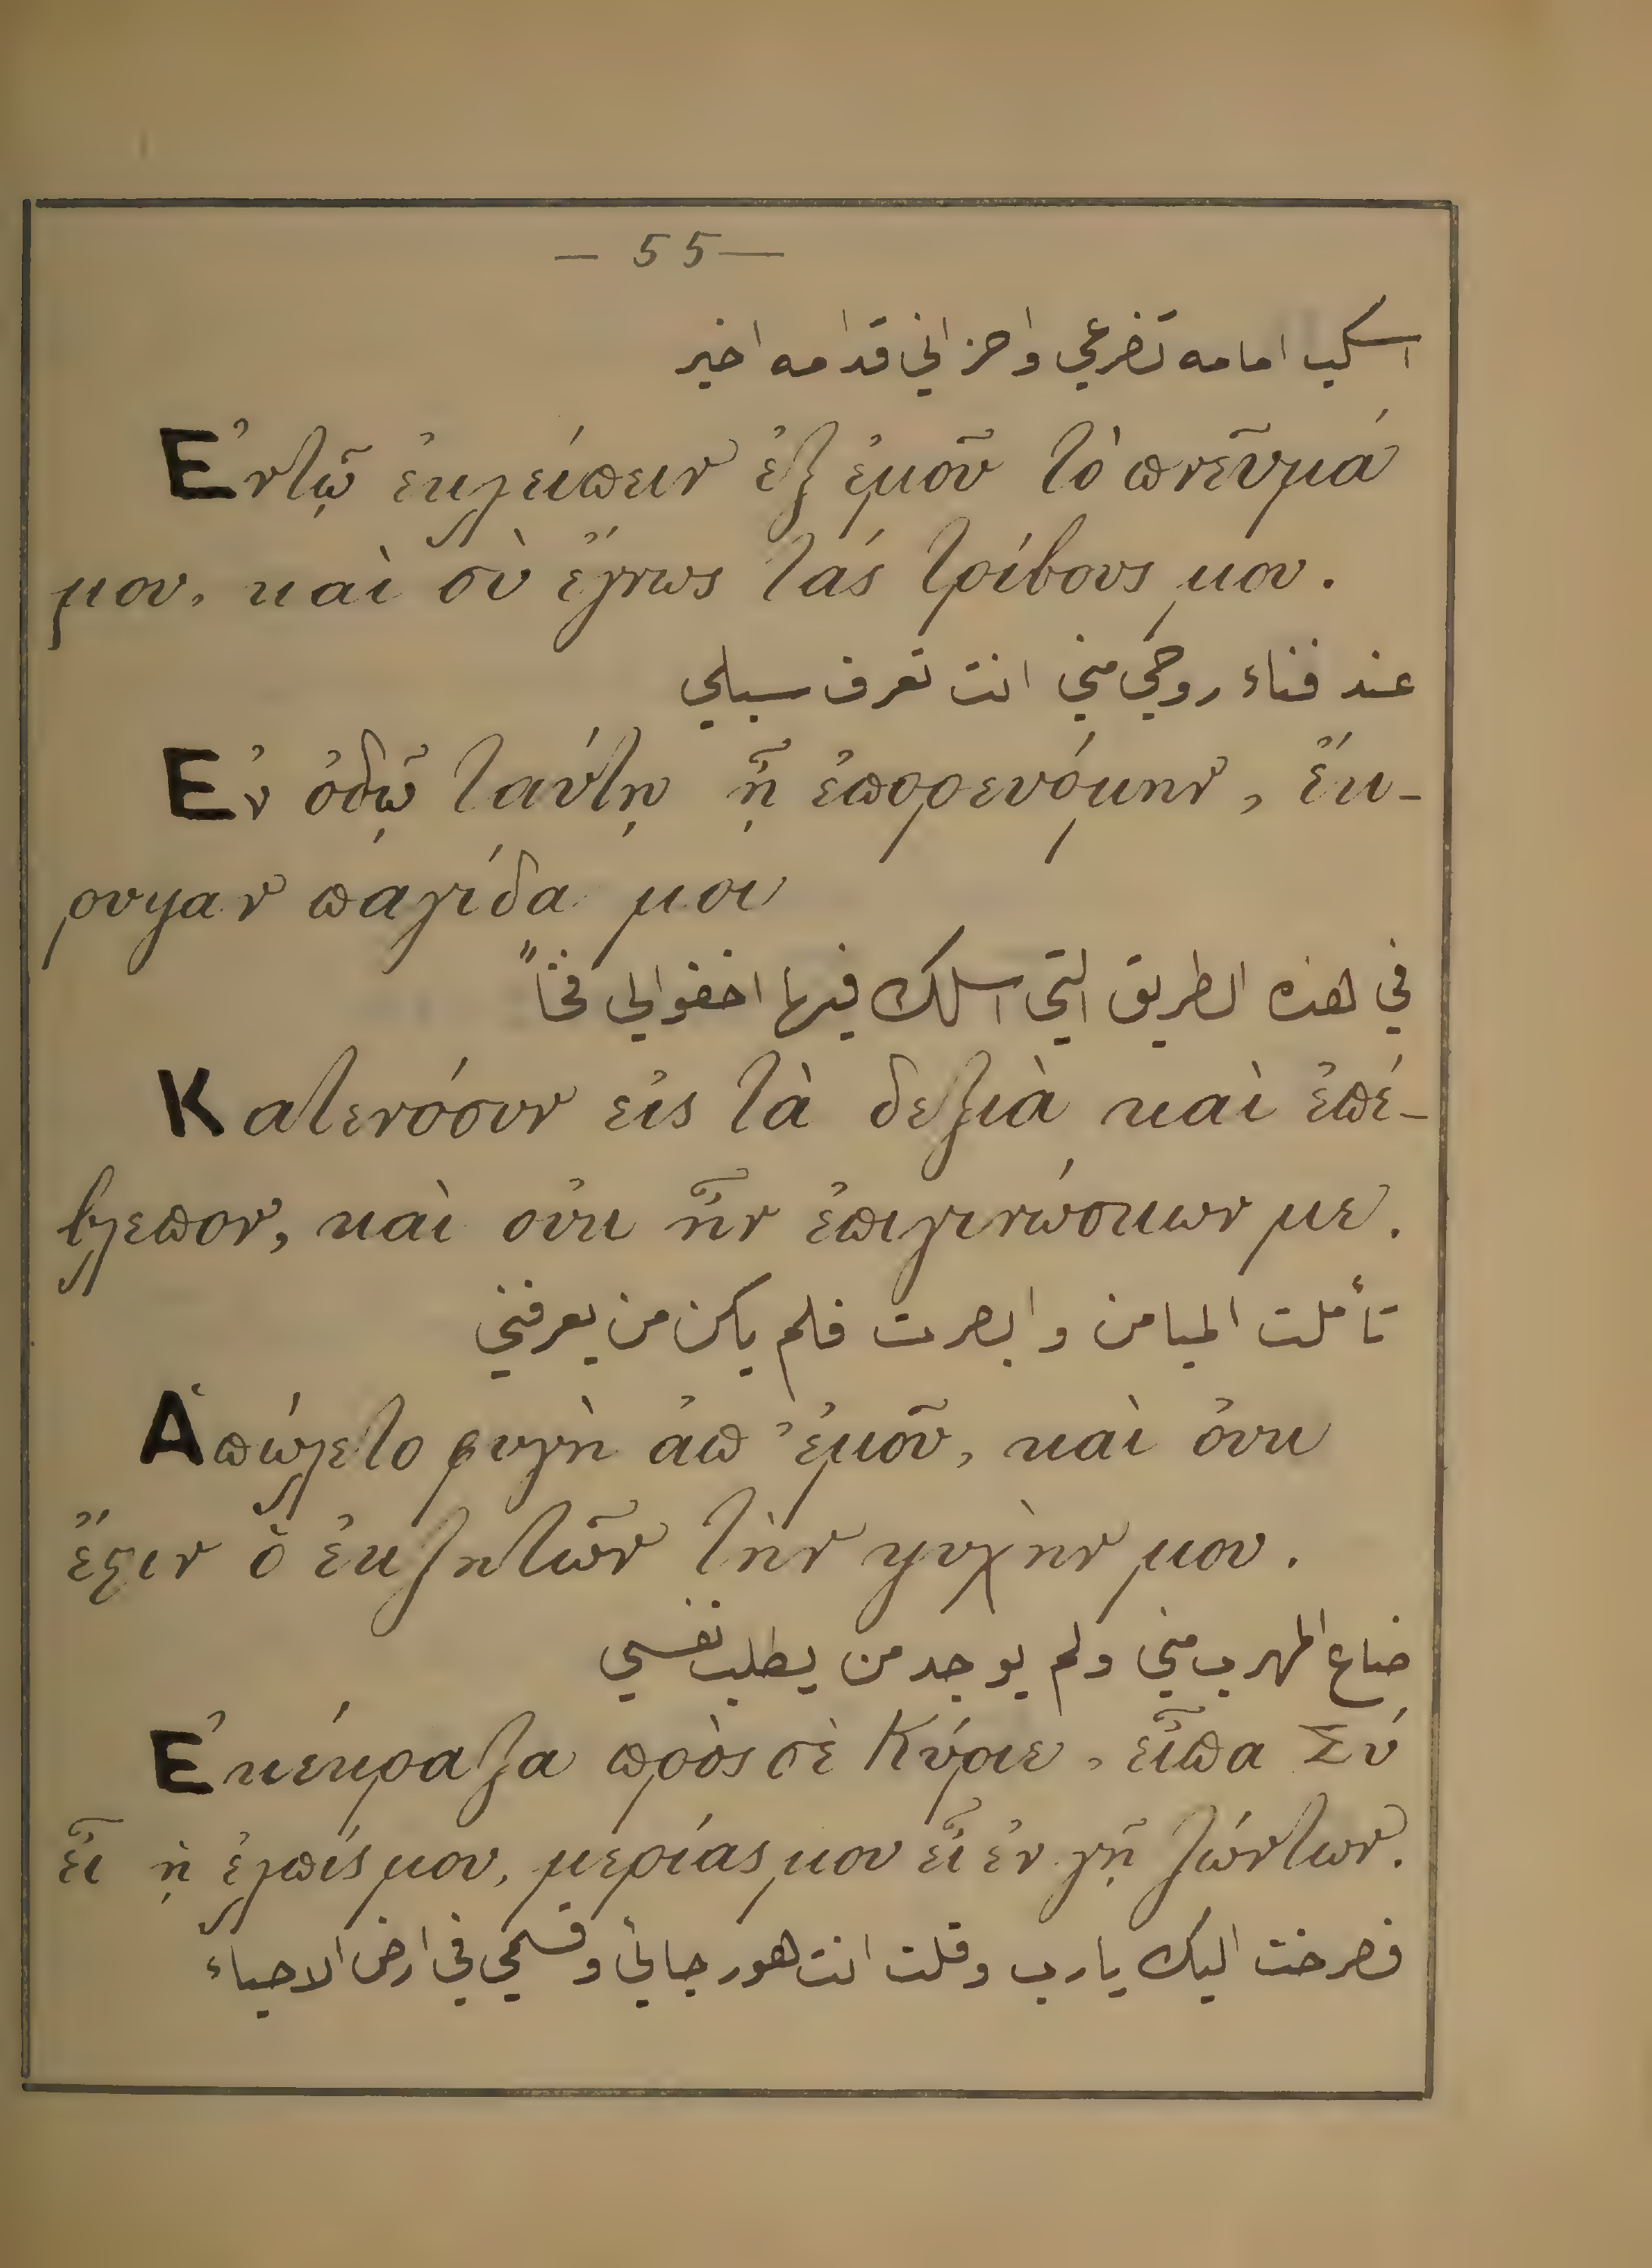 — 55 —
اسكب امامه تضرعي واحزاني قدامه اخبر
Ἐν τῷ ἐκλείπειν ἐξ ἐμοῦ τὸ πνεῦμά
μου, καὶ σὺ ἔγνως τάς τρίβους μου.
عند فناء روحي مني انت تعرف سبلي
Ἐν ὁδῷ ταύτῃ ᾗ ἐπορευόμην, ἔκ-
ρυψαν παγίδα μοι
في هذه الطريق التي اسلك فيها اخفوا لي فخاً
Κατενόουν εἰς τὰ δεξιὰ καὶ ἐπέ-
βλεπον, καὶ οὐκ ἦν ἐπιγινώσκων με.
تأملت الميامن وابصرت فلم يكن من يعرفني
Ἀπώλετο φυγὴ ἀπ᾽ ἐμοῦ, καὶ ὀυκ
ἔστιν ὁ ἐκζητῶν τὴν ψυχὴν μου.
ضاع المهرب مني ولم يوجد من يطلب نفسي
Ἐκέκραξα πρὸς σὲ Κύριε, εἶπα Σύ
εἶ ἡ ἐλπίς μου, μερίας μου εἶ ἐν γῇ ζώντων.
فصرخت اليك يارب وقلت انت هو رجائي وقسمي في ارض الاحياء